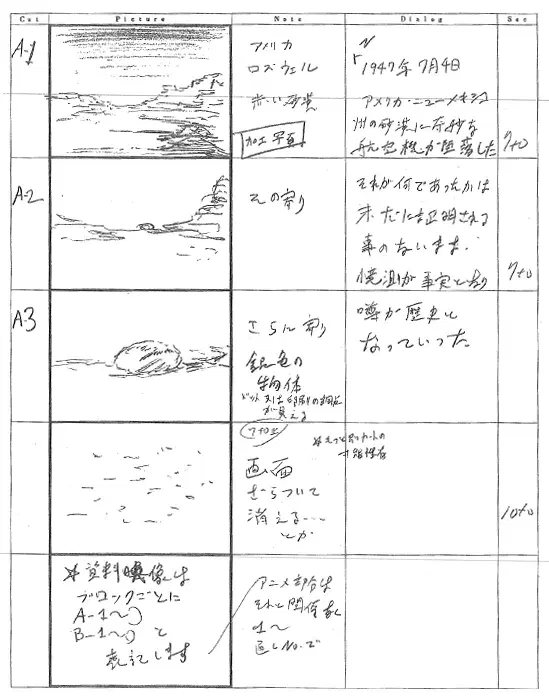 Cut Picture Note Dialog Sec
A-1
アメリカ
ロズウェル
赤い砂漠
加工写真
N
「1947年7月4日
アメリカ・ニューメキシコ
州の砂漠に奇妙な
航空機が墜落した
7+0
A-2
その寄り
それが何であったかは
未だに証明される
事のないまま、
憶測が事実となり
7+0
A-3
さらに寄り
銀色の
物体
が見える
噂が歴史と
なっていった
画面
ざらついて
消える……
とか
10+0
※資料映像は
ブロックごとに
A-1〜
B-1〜 と
表記します
アニメ部分は
それと関係なく
1〜
通しNo.で